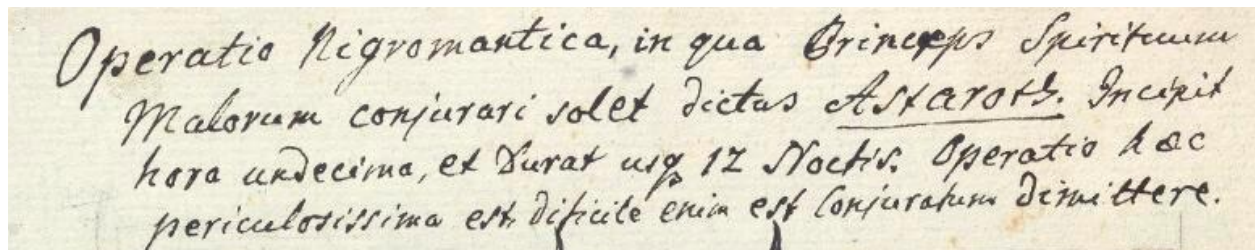 Operatio Nigromantica, in qua Princeps Spirituum
Malorum conjurari solet dictus Astaroth. Incipit
hora undecima, et durat usq 12 Noctis. Operatio hæc
periculosissima est. dificile enim est Conjuratum dimittere.